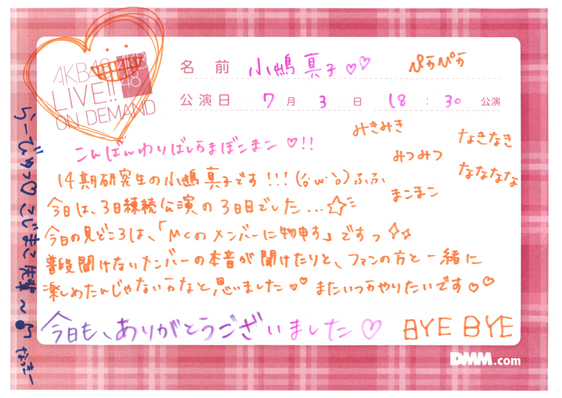 AKB48
LIVE!!
ON DEMAND
名前 小嶋真子♡♡ ぴかぴか
公演日 7月3日 18:30公演
みきみき
なきなき
みつみつ
なななな
まこまこ
こんばんわりばしがまぼこまこ♡!!
14期研究生の小嶋真子です!!!(�´ω`)ふふ
今日は、3日連続公演の3日目でした...☆
今日の見どころは、「MCのメンバーに物申す」ですっ☆☆
普段聞けないメンバーの本音が聞けたりと、ファンの方と一緒に
楽しめたんじゃないかなと、思いました♡またいつかやりたいです♡♡
今日も、ありがとうございました♡ BYE BYE
らーびゅっ♡こじまこ先輩～
DMM.com